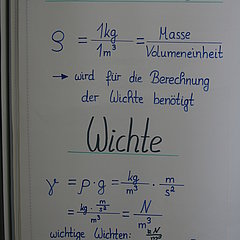 ρ = 1kg / 1m³ = Masse / Volumeneinheit
→ wird für die Berechnung
der Wichte benötigt
Wichte
γ = ρ · g = kg / m³ · m / s²
= kg · m/s² / m³ = N / m³
wichtige Wichten: